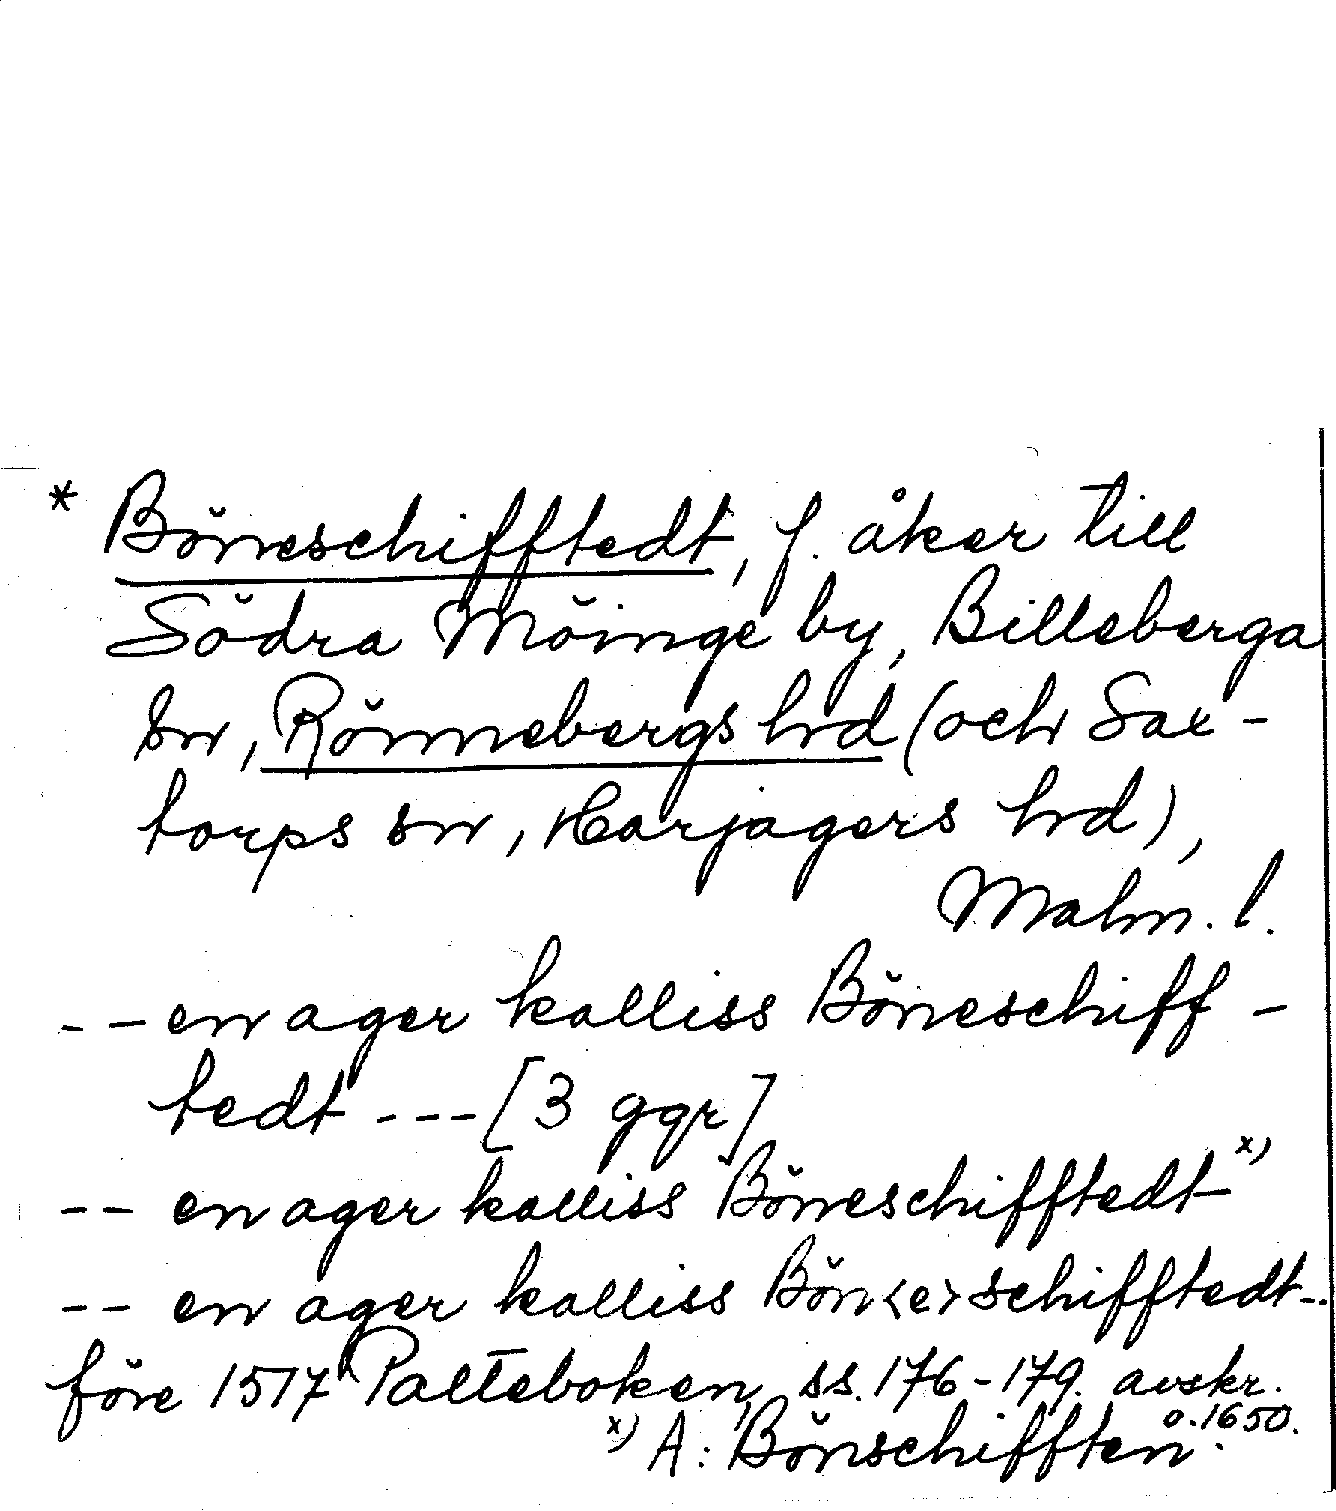 * Böneschifftedt, f. åker till
Södra Möinge by, Billeberga
sn, Rönnebergs hrd (och Sax-
torps sn, Harjagers hrd),
Malm. l.
-- en ager kalliss Böneschiff-
tedt --- [3 ggr]
-- en ager kalliss Böneschifftedt x)
-- en ager kalliss Bön<e>schifftedt--.
före 1517 Palteboken, ss. 176-179. avskr.
o. 1650.
x) A: Bönschifften.